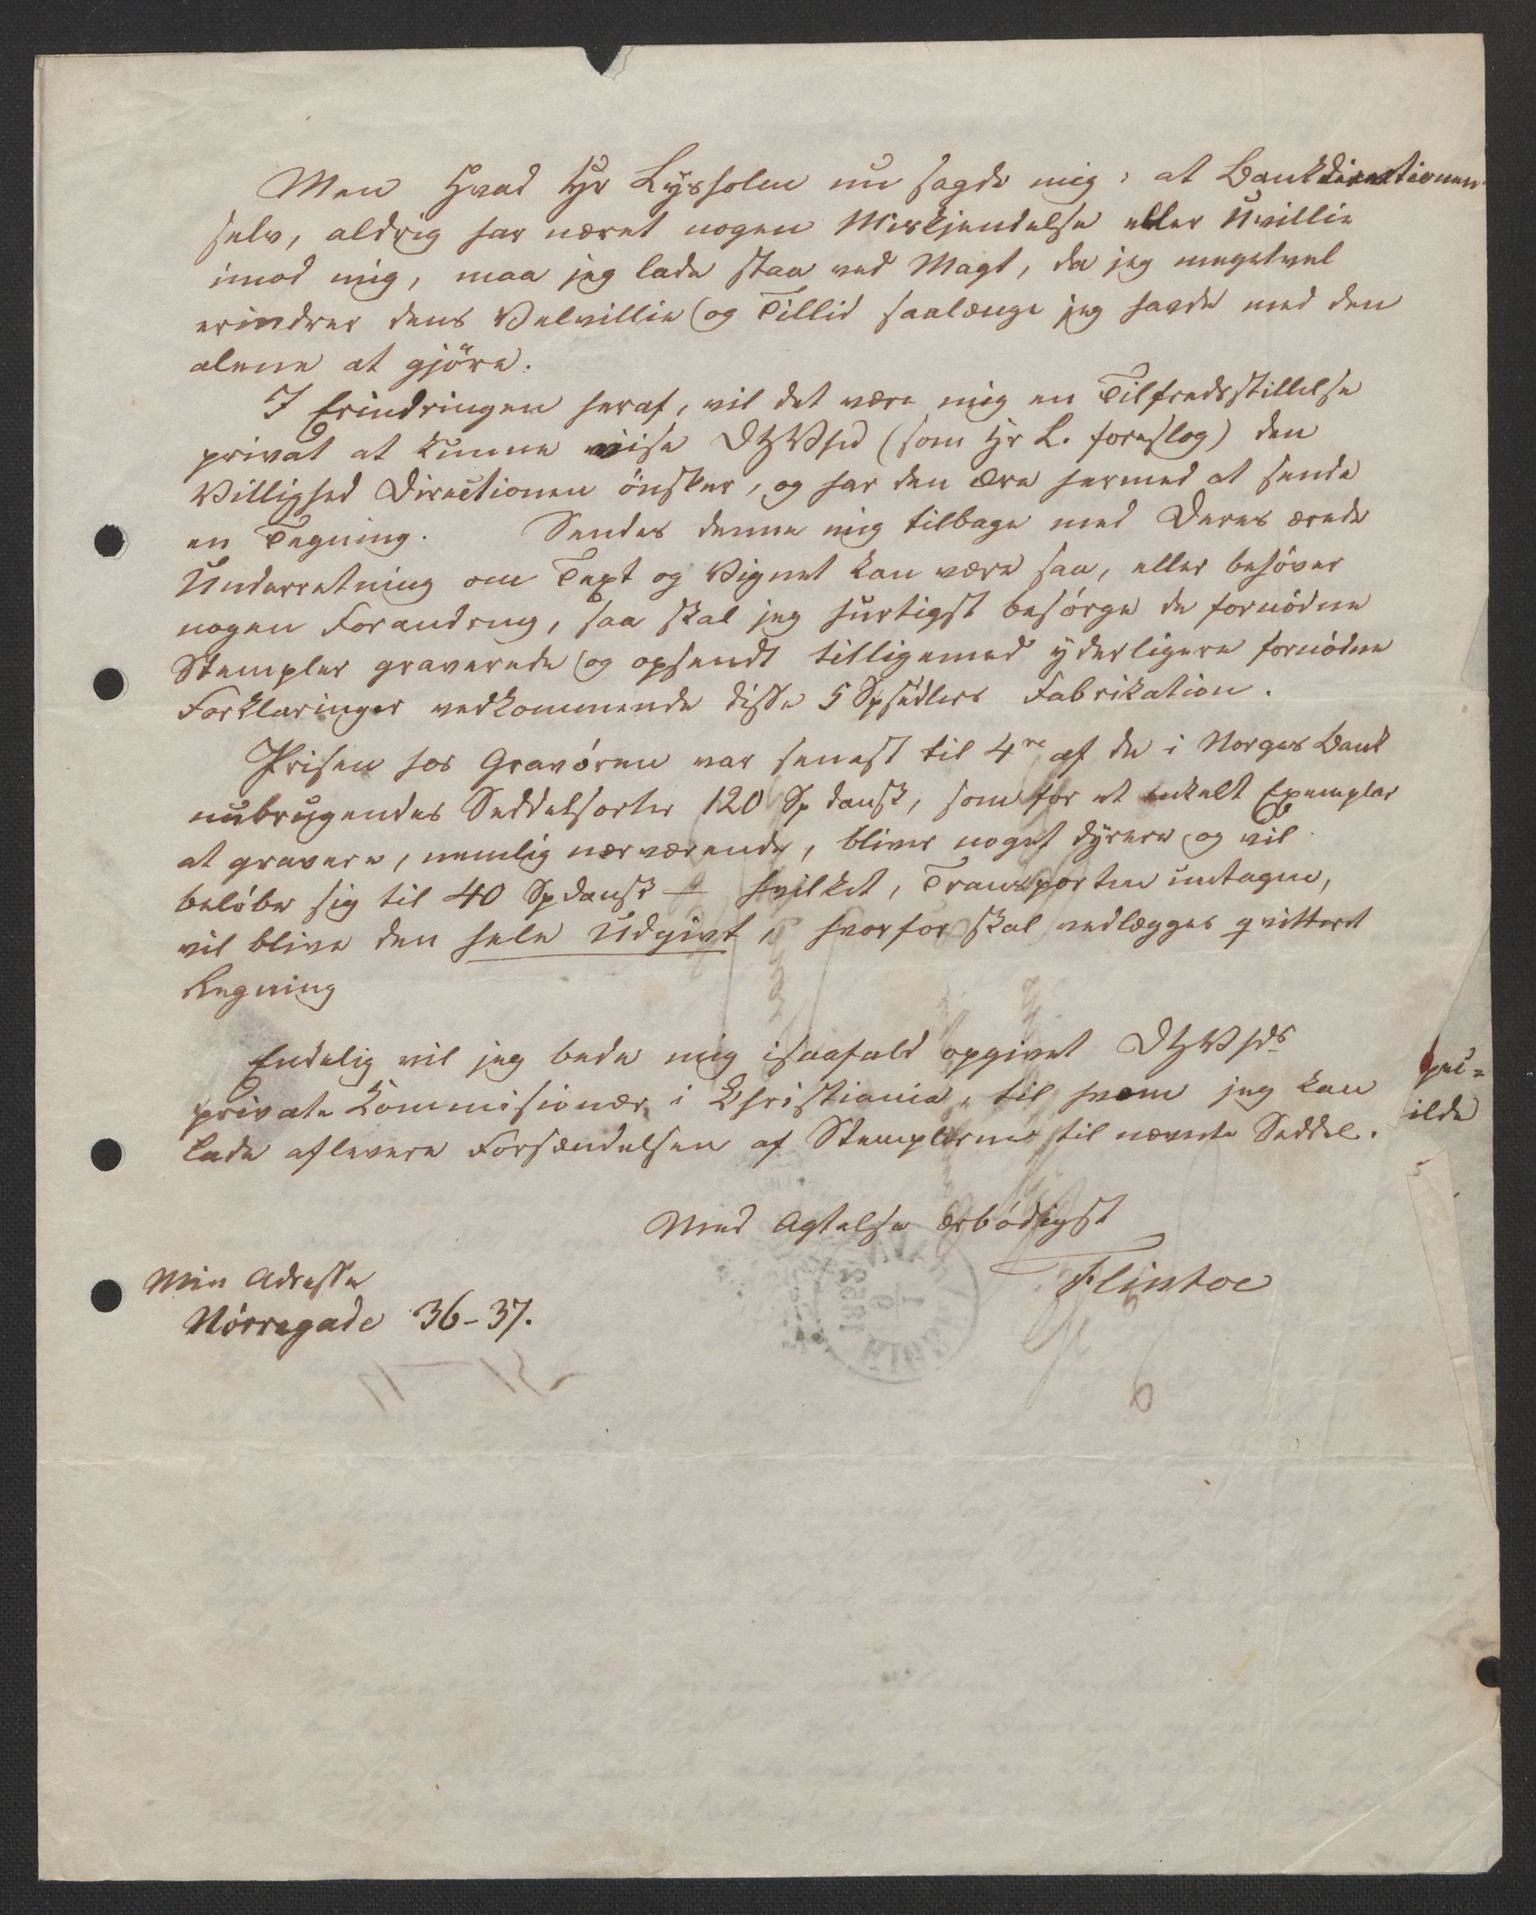 Men Hvad Hr Lysholm nu sagde mig: at Bankdirectionen
selv, aldrig har næret nogen Miskjendelse eller Uvillie
imod mig, maa jeg lade staa ved Magt, da jeg megetvel
erindrer dens Velvillie og Tillid saalænge jeg havde med den
alene at gjöre.
I Erindringen heraf, vil det være mig en Tilfredsstillelse
privat at kunne viise DHVhd (som Hr L. foreslog) den
Villighed Directionen önsker, og har den Ære hermed at sende
en Tegning. Sendes denne mig tilbage med Deres ærede
Underretning om Text og Vignet kan være saa, eller behöver
nogen Forandrng, saa skal jeg hurtigst besörge de fornödne
Stempler graverede og opsendt tilligemed yderligere fornödne
Forklaringer vedkommende disse 5 Spsedlers Fabrikation.
Prisen hos Gravören var senest til 4re af de i Norges Bank
nubrugendes Seddelsorter 120 Sp dansk, som for et enkelt Exemplar
at gravere, nemlig nærværende, bliver noget dyrere og vil
belöbe sig til 40 Spdansk – hvilket, Transporten untagen,
vil blive den hele Udgivt, hvorfor skal vedlægges qvitteret
Regning
Endelig vil jeg bede mig isaafald opgivet DHVhds
private Kommisionær i Christiania, til hvem jeg kan
lade aflevere Forsændelsen af Stemplerne til nævnte Seddel.
Med Agtelse ærbödigst
Flintoe
Min Adresse
Nörregade 36-37.
ilde